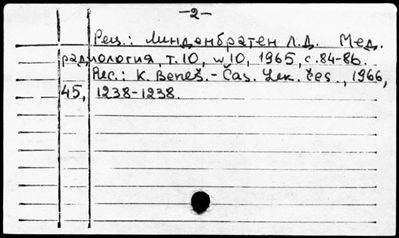 -2-
Рец.: Линденбратен Л.Д. Мед.
радиология, т.10, №10, 1965, с.84-86.
Rec.: K. Beneš. - Čas. Lek. čes., 1966,
45, 1238-1238.